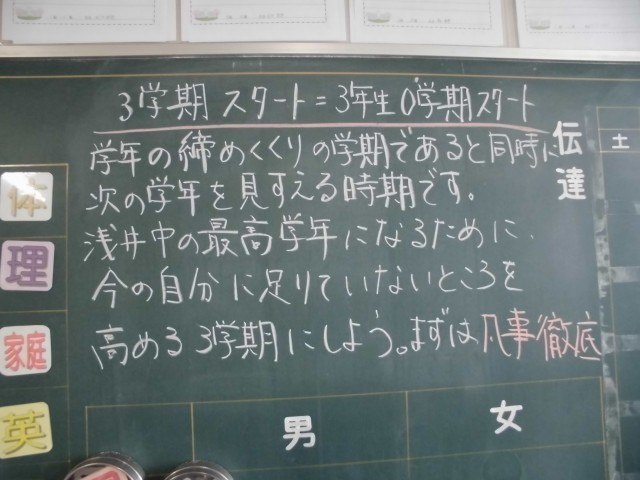 3学期 スタート=3年生0学期スタート
学年の締めくくりの学期であると同時に
次の学年を見すえる時期です。
浅井中の最高学年になるために、
今の自分に足りていないところを
高める3学期にしよう。まずは凡事徹底
伝達
土
体
理
家庭
英
男
女